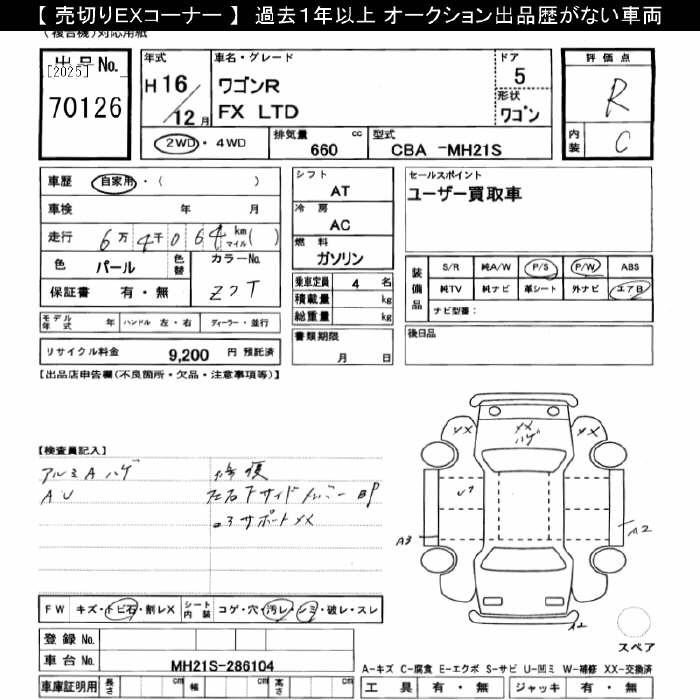 【 売切りEXコーナー 】 過去1年以上 オークション出品歴がない車両
(複合機)対応用紙
出品No.
[2025]
70126
年式
H 16／12月
車名・グレード
ワゴンR
FX LTD
ドア
5
形状
ワゴン
評価点
R
内装
C
2WD・4WD
排気量
660 cc
型式
CBA -MH21S
車歴 自家用・( )
車検 年 月
走行 6万4千064 km マイル( )
色 パール 色替
カラーNo. Z7T
保証書 有・無
モデル年式 年 ハンドル 左・右 ディーラー・並行
リサイクル料金 9,200 円 預託済
シフト
AT
冷房
AC
燃料
ガソリン
乗車定員 4 名
積載量 kg
総重量 kg
書類期限
月 日
セールスポイント
ユーザー買取車
装備品
S/R 純A/W P/S P/W ABS
純TV 純ナビ 革シート 外ナビ エアB
ナビ型番:
後日品
【出品店申告欄(不良箇所・欠品・注意事項等)】
【検査員記入】
アルミAハゲ
AU
修復
左右FサイドメンバーBP
コアサポートXX
XX
XX
ハゲ
XX
U1
A3
A2
A2
FW キズ・トビ石・割レX
シート内装 コゲ・穴・汚レ・シミ・破レ・スレ
登録No.
車台No. MH21S-286104
車庫証明用 長さ cm 幅 cm 高さ cm
スペア
A-キズ C-腐食 E-エクボ S-サビ U-凹ミ W-補修 XX-交換済
工具 有・無 ジャッキ 有・無